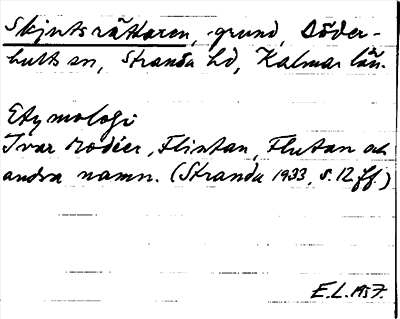 Skjutsrättaren, grund, Döder-
hults sn, Stranda hd, Kalmar län.
Etymologi
Ivar Modéer, Flintan, Flutan och
andra namn. (Stranda 1933, s. 12 ff.)
E.L. 1957.